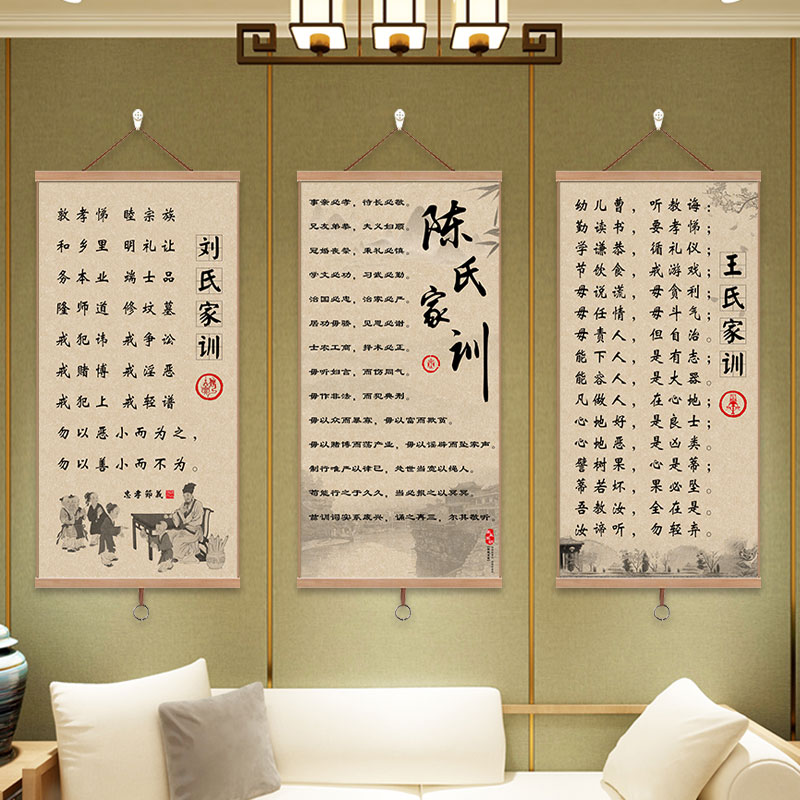 刘氏家训
敦孝悌 睦宗族
和乡里 明礼让
务本业 端士品
隆师道 修坟墓
戒犯讳 戒争讼
戒赌博 戒淫恶
戒犯上 戒轻谱
勿以恶小而为之，
勿以善小而不为。
忠孝節義
陈氏家训
事亲必孝，待长必敬。
兄友弟恭，夫义妇顺。
冠婚丧祭，秉礼必慎。
学文必功，习武必勤。
治国必忠，治家必严。
居功毋骄，见恩必谢。
士农工商，择术必正。
毋听妇言，而伤同气。
毋作非法，而犯典刑。
毋以众而暴寡，毋以富而欺贫。
毋以赌博而荡产业，毋以谣辟而坠家声。
制行唯严以律已，处世当宽以绳人。
苟能行之于久久，当必报之以冥冥。
兹训词实系废兴，诵之再三，尔其敬听。
王氏家训
幼儿曹，听教诲；
勤读书，要孝悌；
学谦恭，循礼仪；
节饮食，戒游戏；
毋说谎，毋贪利；
毋任情，毋斗气；
毋责人，但自治；
能下人，是有志；
能容人，是大器；
凡做人，在心地；
心地好，是良士；
心地恶，是凶类；
譬树果，心是蒂；
蒂若坏，果必坠。
吾教汝，全在是；
汝谛听，勿轻弃。